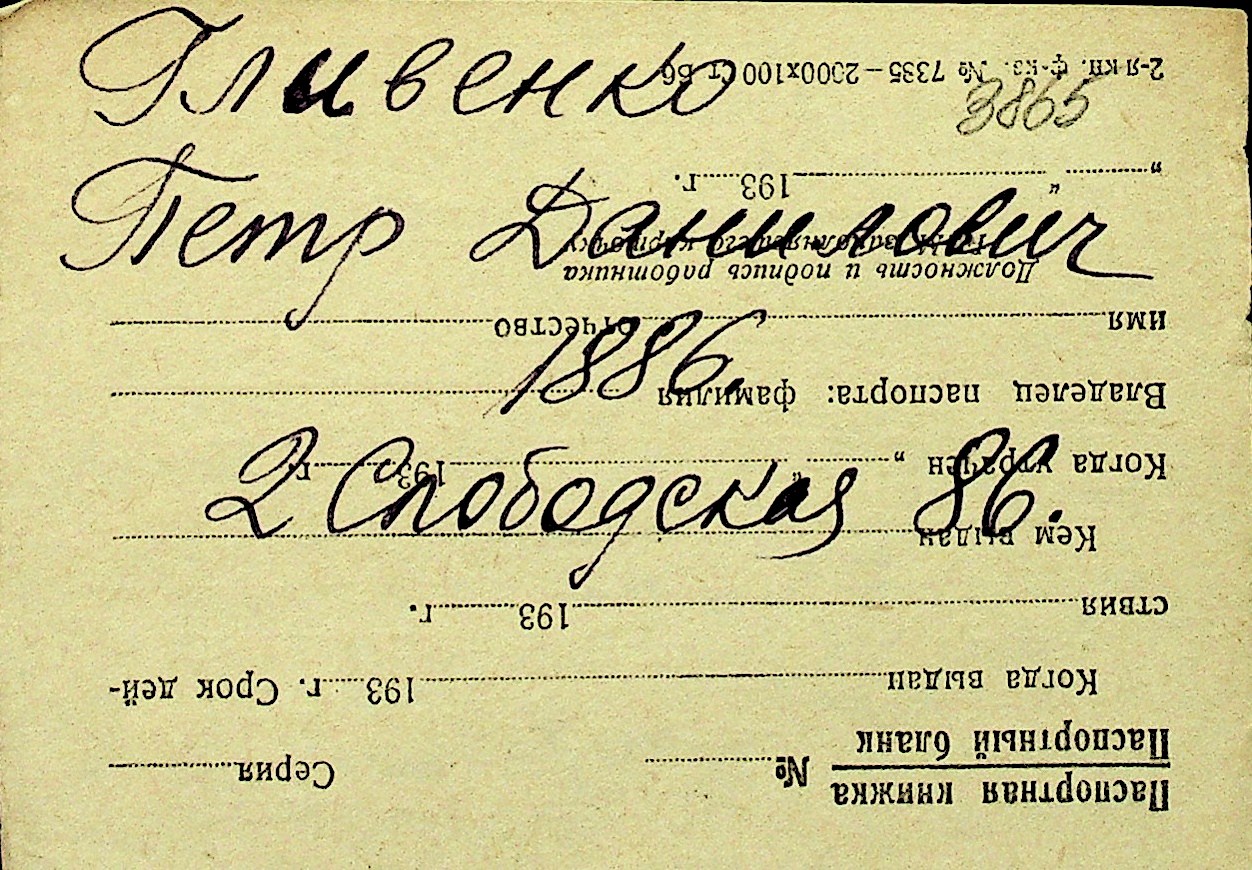 Гливенко
3865
Петр Данилович
1886.
2 Слободская 86.
Паспортная книжка
Паспортный бланк
№ Серия
Когда выдан 193 г. Срок дей-
ствия 193 г.
Кем выдан
Когда утрачен „ “ 193 г.
Владелец паспорта: фамилия
имя отчество
Должность и подпись работника
заполнявшего карточку
„ “ 193 г.
2-я кн. ф-ка. № 7335—2000x100 Ст Б6